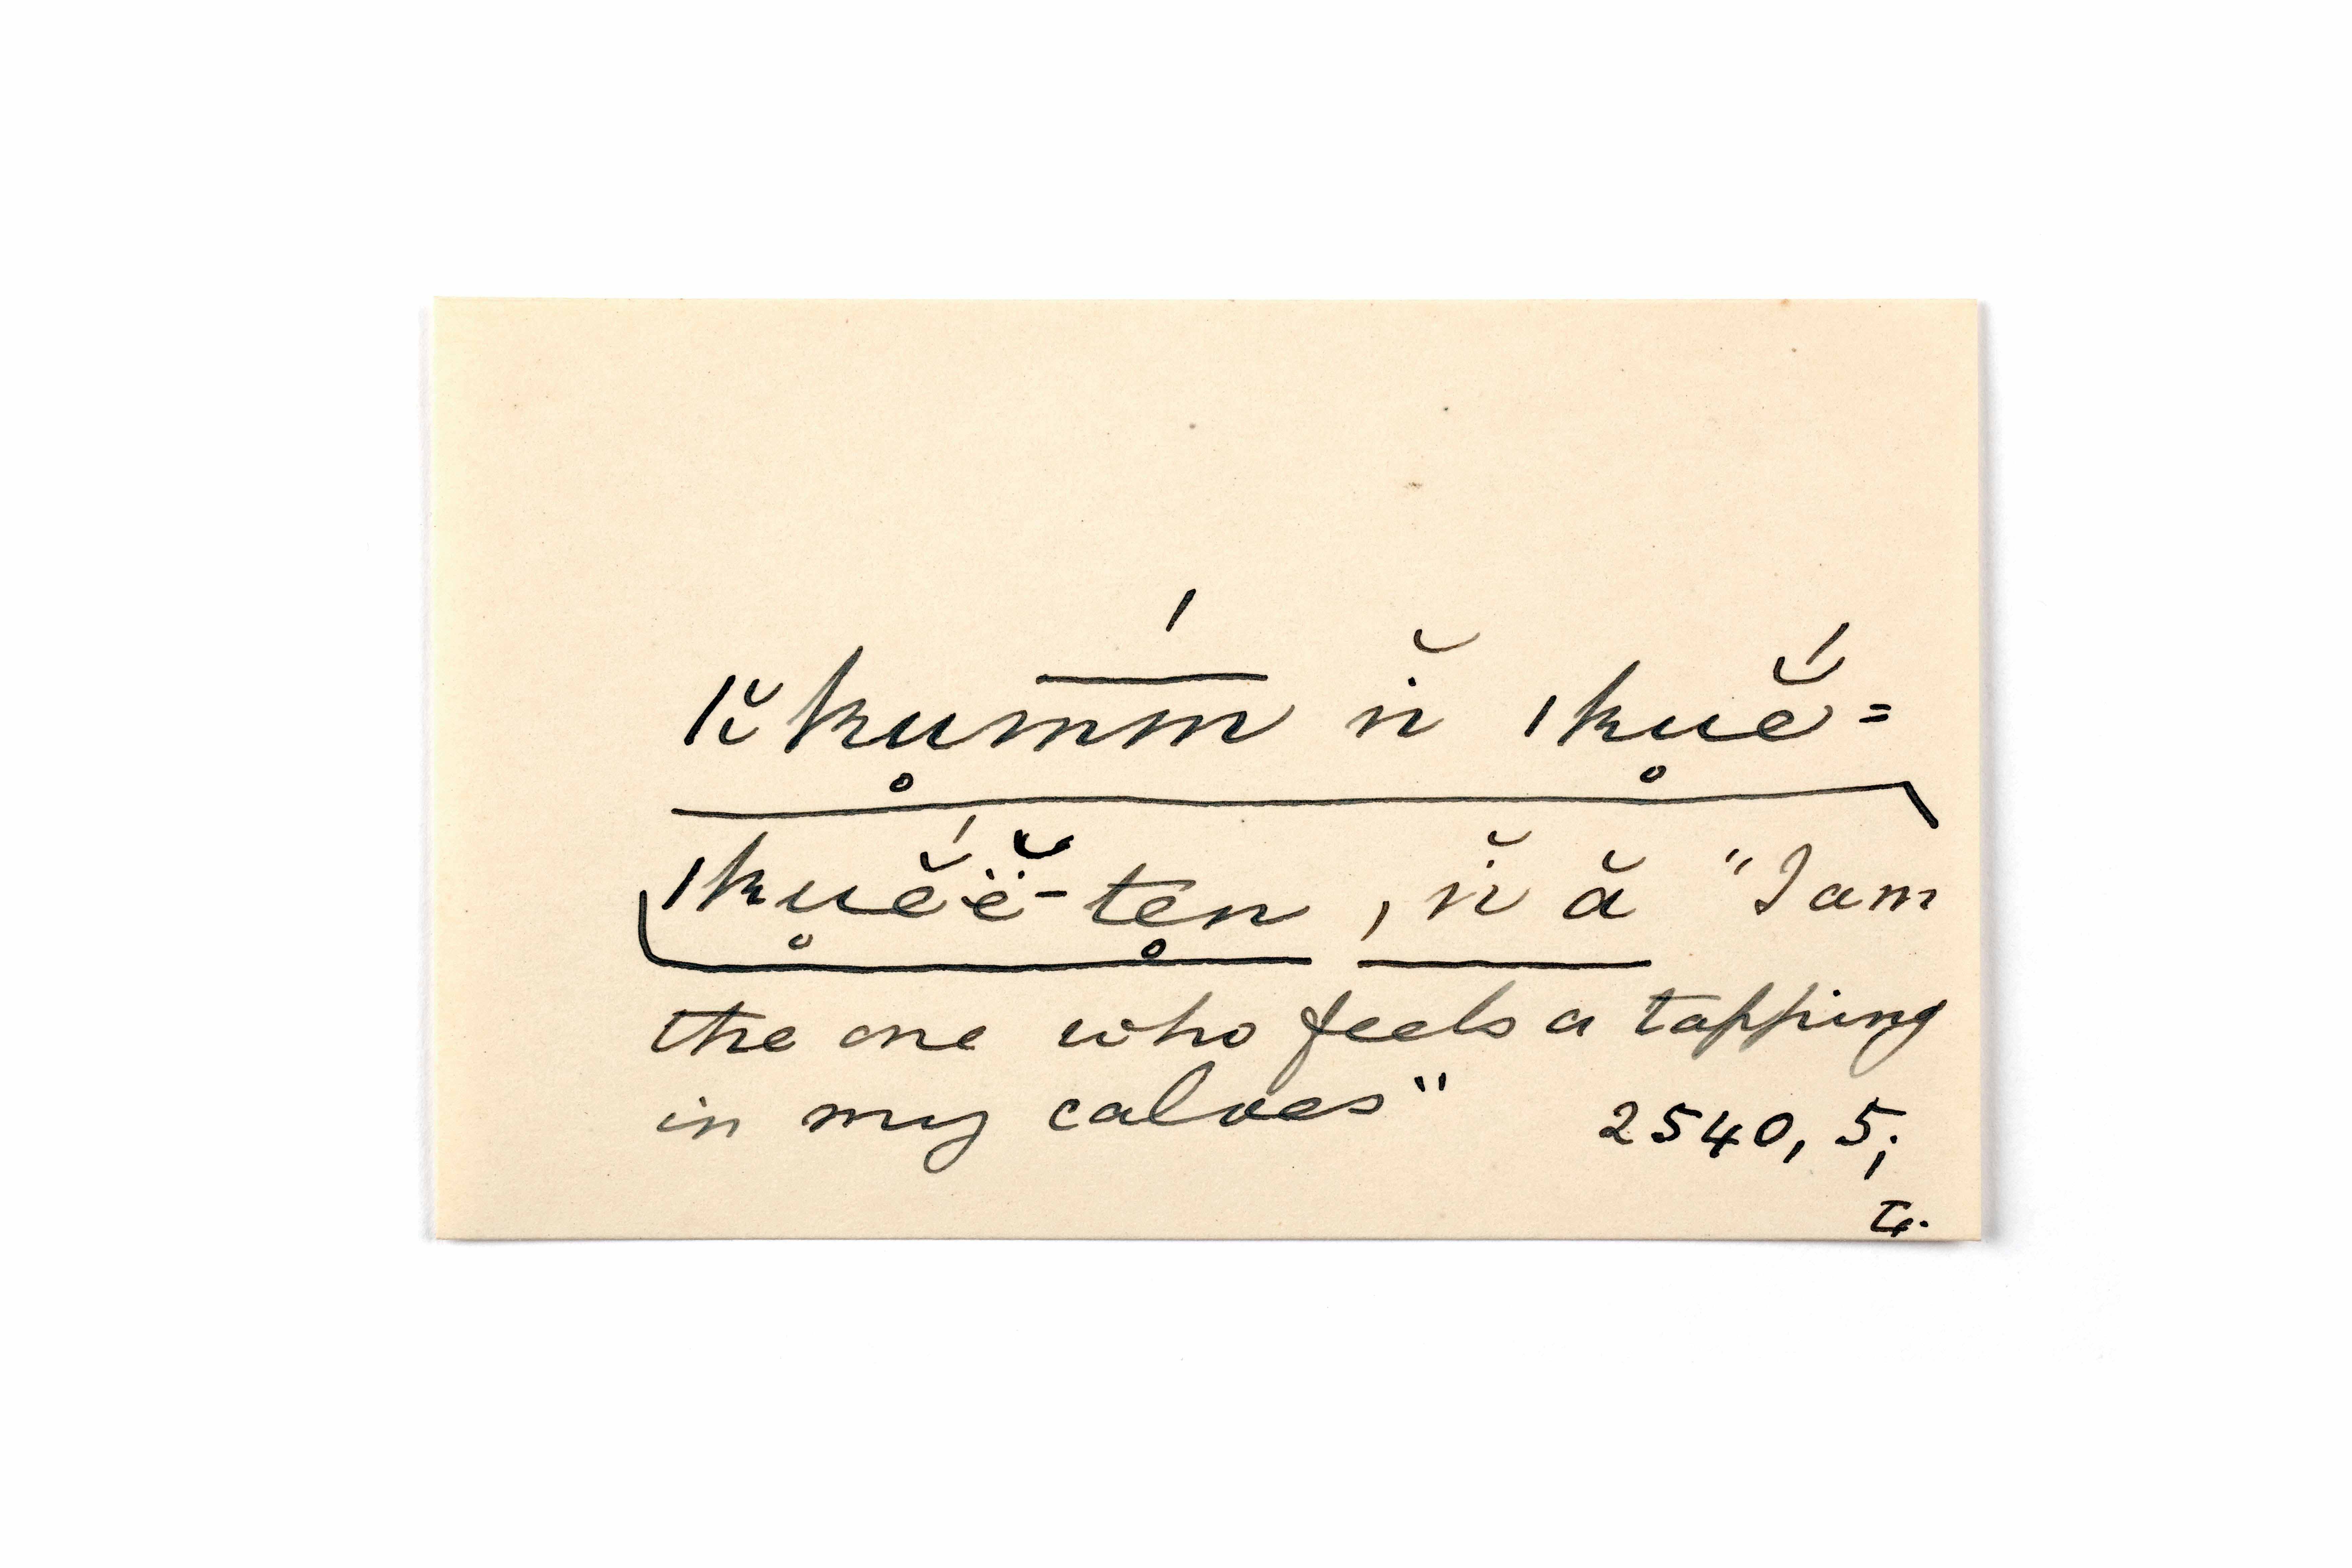 ǀk̆ku̥m̅́m̅ ṅ̆ ǀku̥ĕ́=
ǀku̥ĕ́ë̆-te̥n , ṅ̆ ă "I am
the one who feels a tapping
in my calves" 2540, 5;